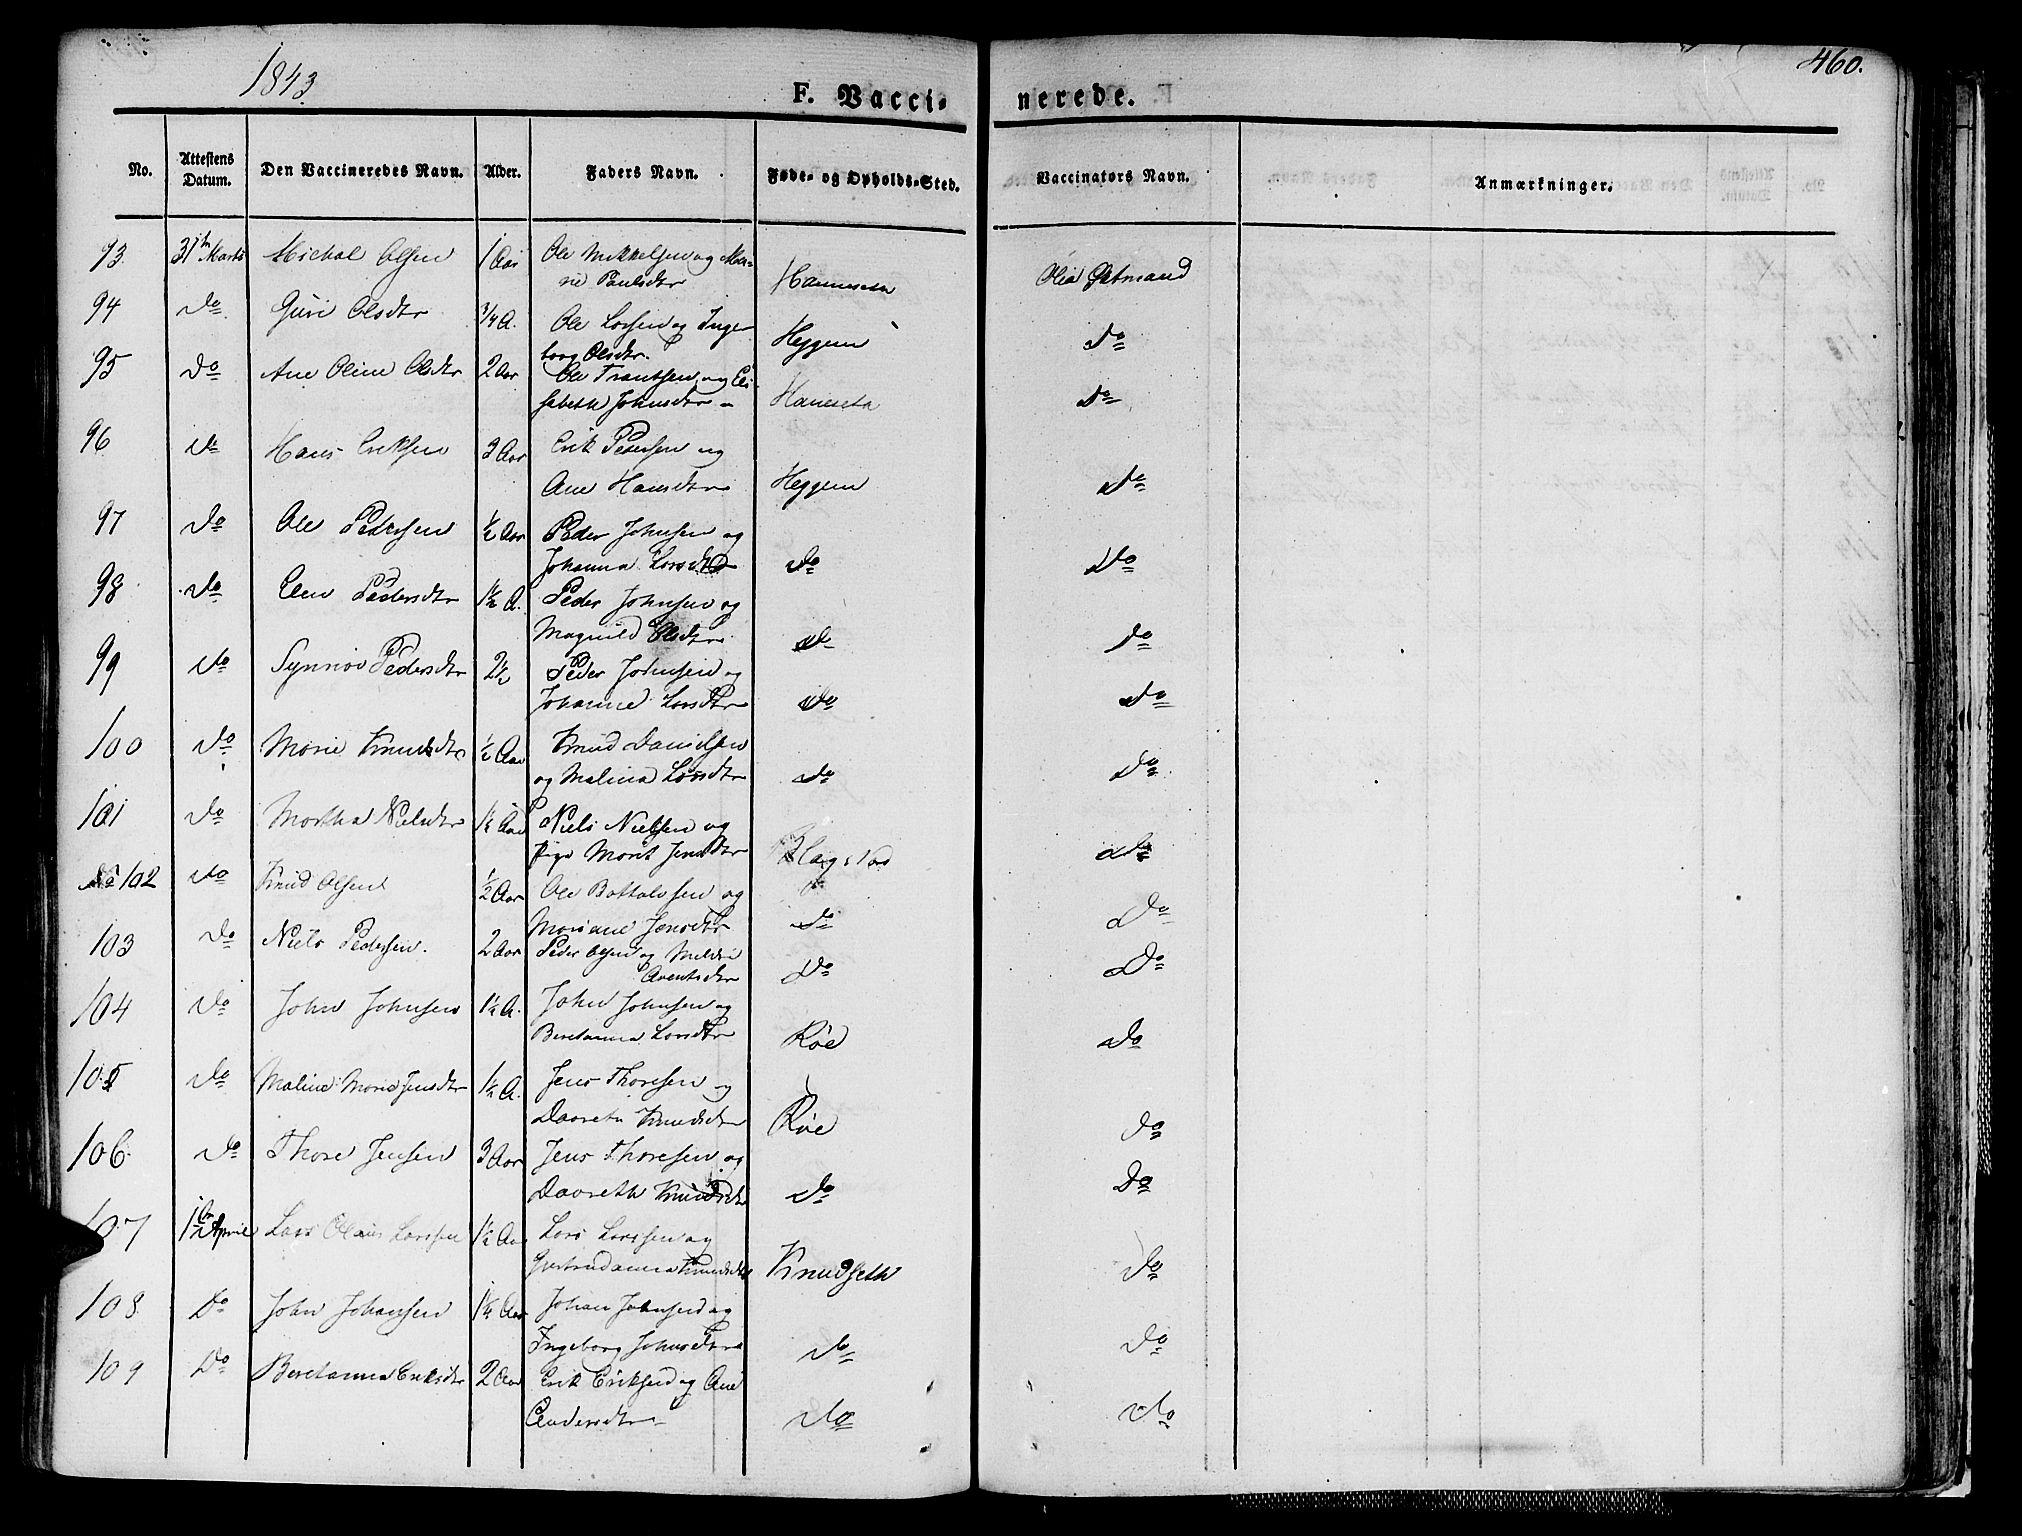 1843
460.
F. Vacci-
nerede.
No.
Attestens Datum.
Den Vaccineredes Navn.
Alder.
Faders Navn.
Føde- og Opholds-Sted.
Vaccinators Navn.
Anmærkninger.
93 31te Marts Michal Olsen 1 Aar Ole Mikkelsen og Ma-
rie Paulsdtr Hanneseta Ola Østmand
94 Do Guri Olsdtr 3/4 A. Ole Larsen og Inge-
borg Olsdtr. Heggem Do
95 Do Ane Oline Olsdtr 2 Aar Ole Frantsen og Eli-
sabeth Johnsdtr Haneseta Do
96 Do Hans Eriksen 3 Aar Erik Pedersen og
Ane Hansdtr Heggem Do
97 Do Ole Pedersen 1/2 Aar Peder Johnsen og
Johanna Larsdtr Do Do
98 Do Elen Pedersdtr 1 1/2 A. Peder Johnsen og
Magnild Olsdtr Do Do
99 Do Synnøv Pedersdtr 2 1/2 Peder Johnsen og
Johanne Larsdtr Do Do
100 Do Marie Knudsdtr 1/2 Aar Knud Danielsen
og Malina Larsdtr Do Do
101 Do Martha Nielsdtr Aar Niels Nielsen og
Pige Marit Jensdtr Do
No 102 Do Knud Olsen 1/2 Aar Ole Bottolvsen og
Mariane Jensdtr Do Do
103 Do Niels Pedersen. 2 Aar Peder Olsen og Mildri
Arentsdtr Do Do
104 Do John Johnsen 1 1/2 A. John Johnsen og
Beretanna Larsdtr Røe Do
105 Do Maline Marie Jensdtr 1 1/2 A. Jens Thoresen og
Daareth Knudsdtr Røe Do
106 Do Thore Jensen 3 Aar Jens Thoresen og
Daareth Knudsdtr Do Do
107 1te April Lars Olaus Larssen 1 1/2 Aar Lars Larssen og
Gjertrudanna Knudsdtr Knudseth Do
108 Do John Johansen Aar Johan Johnsen og
Ingeborg Johnsdtr Do Do
109 Do Beretanna Eriksdtr 2 Aar Erik Eriksen og Ane
Andersdtr Do Do